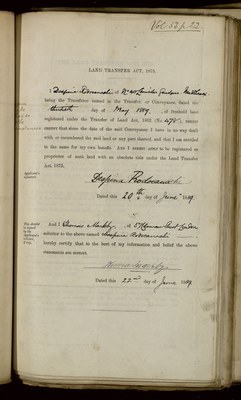 Vol 53 p 22
LAND TRANSFER ACT, 1875.
I Despina Rodocanachi of No 40
being the Transferee named in the Transfer or Conveyance dated the
thirtieth day of May 1889, of freehold land
registered under the Transfer of Land Act, 1862 (No. 478), hereby
certify that since the date of the said Conveyance I have in no way dealt
with or incumbered the said land or any part thereof, and that I am entitled
to the same for my own benefit. And I consent never to be registered as
proprietor of such land with an absolute title under the Land Transfer
Act, 1875.
Applicant's
signature.
Despina Rodocanachi
Dated this 20th day of June 1889
This should
be signed
by the
Applicant's
Solicitor.
And I Thomas Murphy of
solicitor to the above named Despina Rodocanachi
hereby certify that to the best of my information and belief the above
statements are correct.
Thomas Murphy
Dated this 22nd day of June 1889